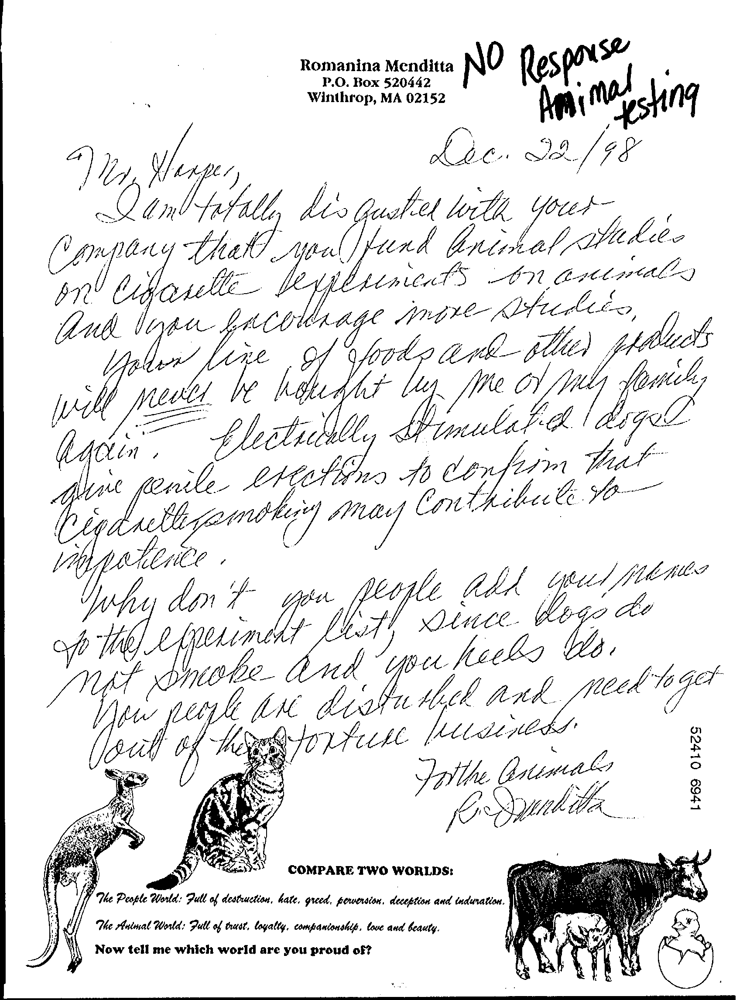 Romanina Menditta
P.O. Box 520442
Winthrop, MA 02152
NO Response
Animal
testing
Dec. 22/98
Mr. Harper,
I am totally disgusted with your
Company that you fund animal studies
on cigarette experiments on animals
and you encourage more studies.
Your line of foods and other products
will never be bought by me or my family
again. Electrically stimulated dogs
give penile erections to confirm that
cigarette smoking may contribute to
impotence.
Why don't you people add your names
to the experiment list, since dogs do
not smoke and you heels do.
You people are disturbed and need to get
out of the torture business.
For the Animals
R. Menditta
52410 6941
COMPARE TWO WORLDS:
The People World: Full of destruction, hate, greed, perversion, deception and induration.
The Animal World: Full of trust, loyalty, companionship, love and beauty.
Now tell me which world are you proud of?